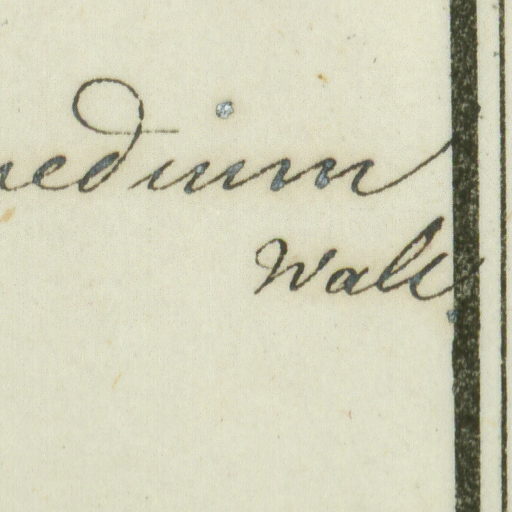 nedium
Wall.